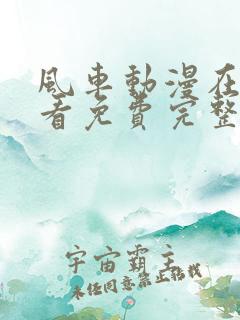 風車動漫在
看免費完整
宇宙霸主
未经同意禁止转载